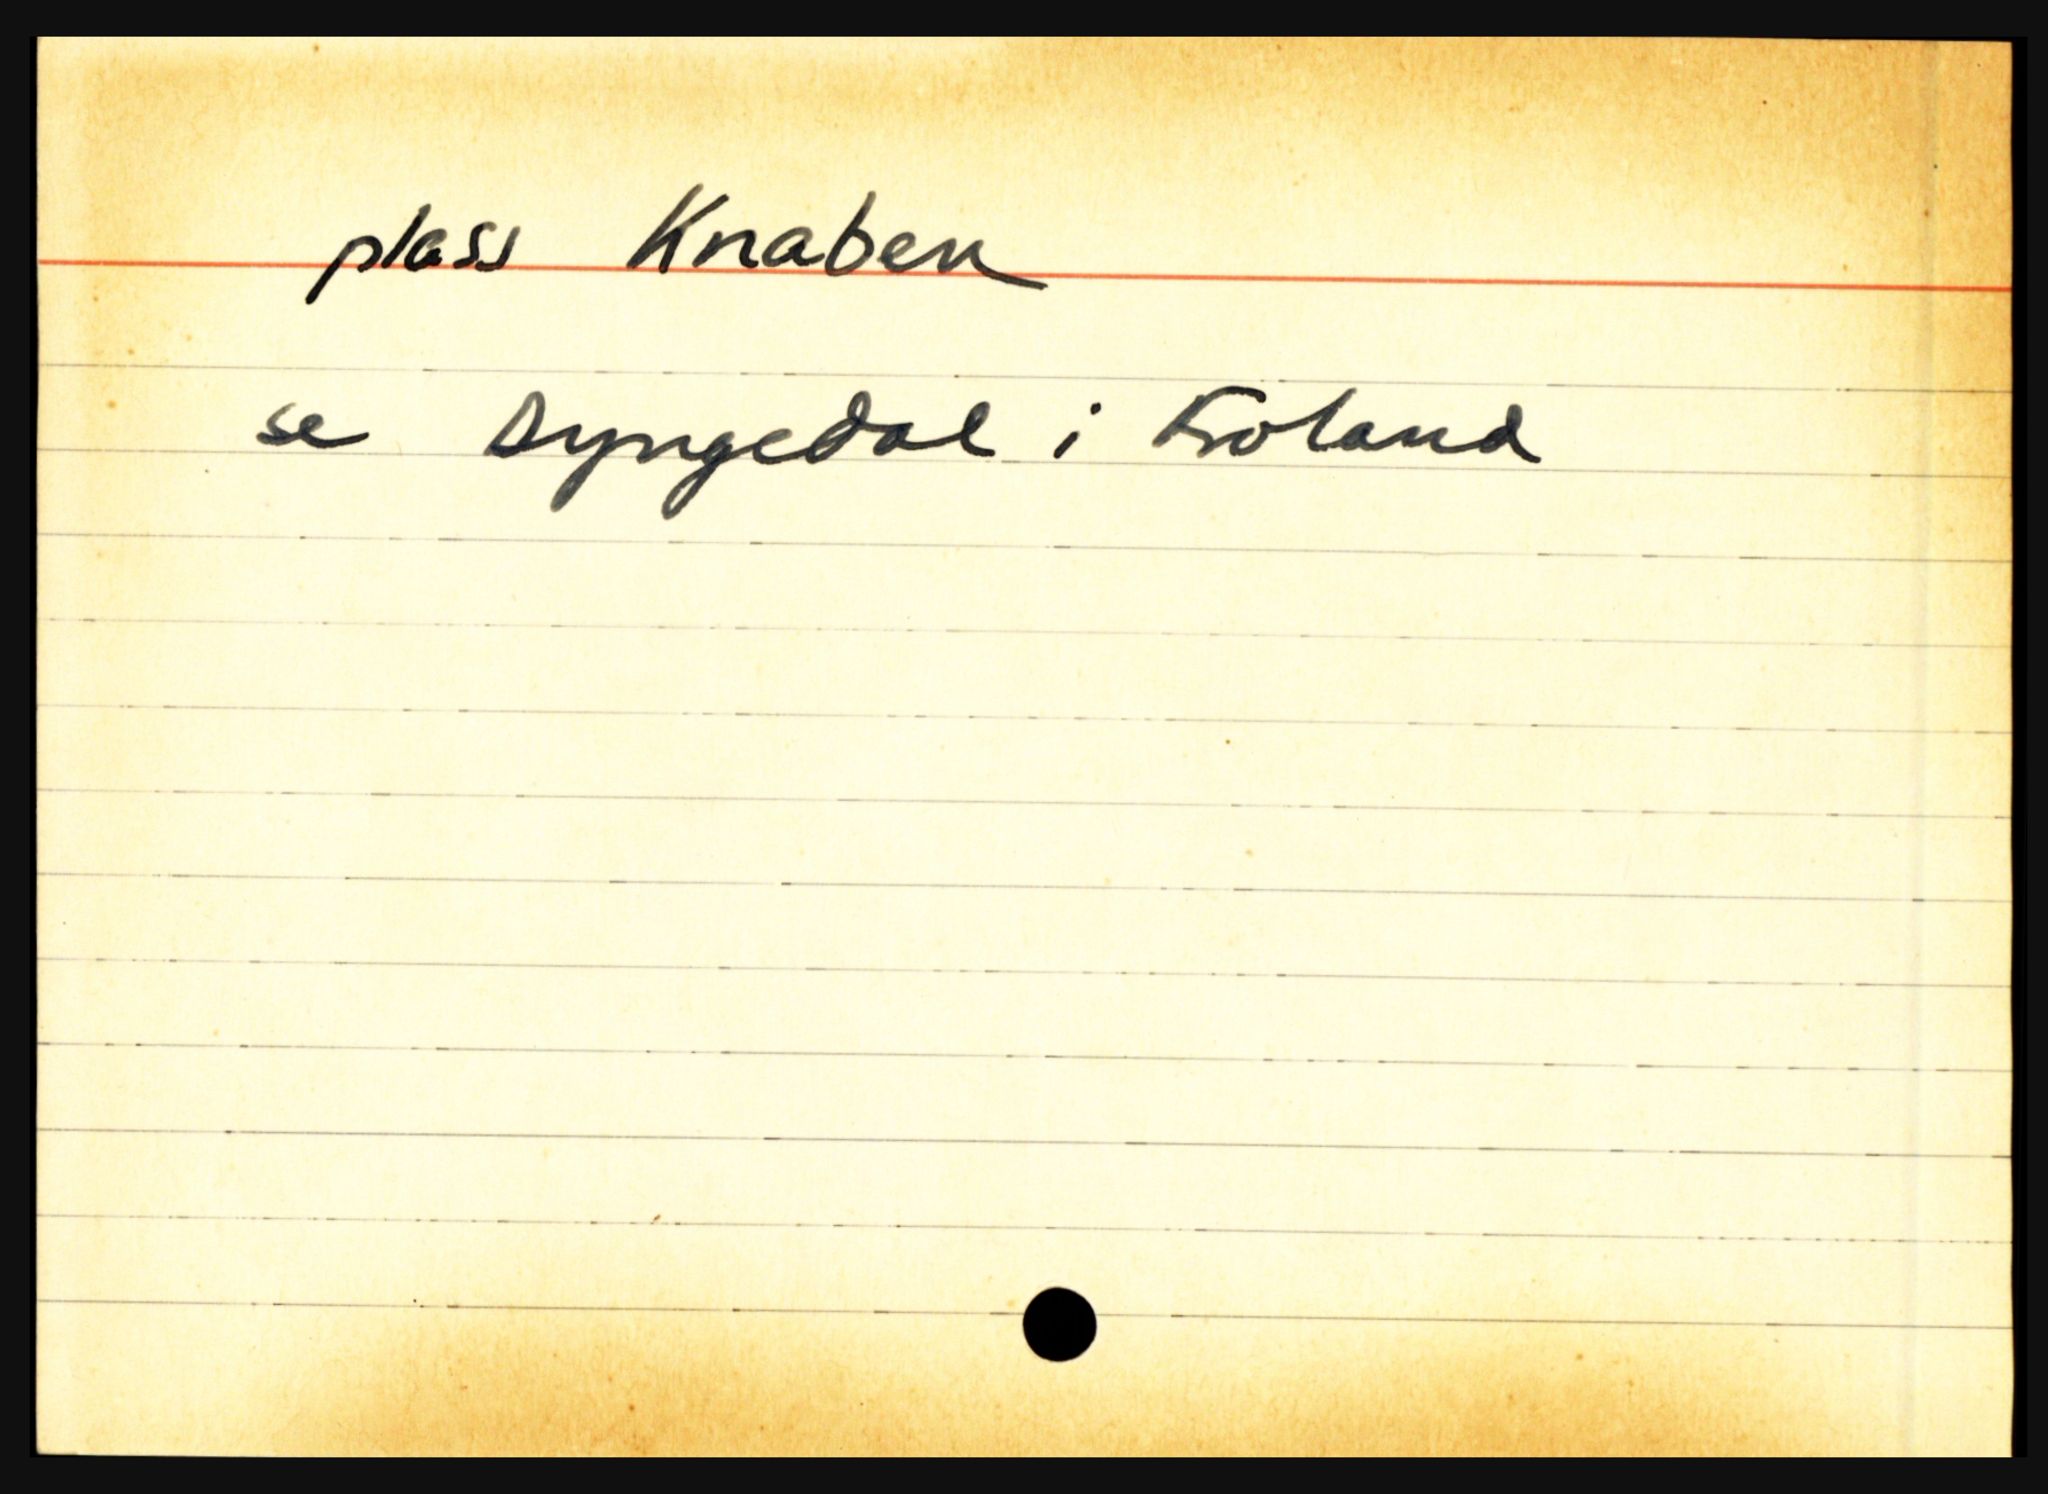 plass Knaben
se Dyngedal i Froland